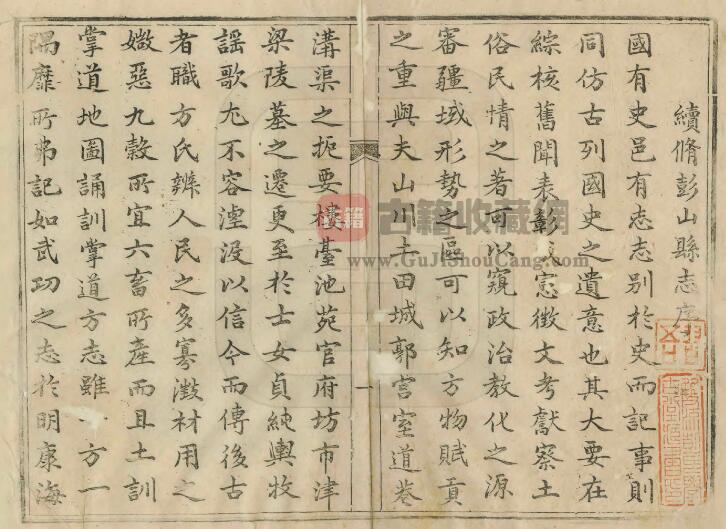 續脩彭山縣志序
國有史邑有志志別於史而記事則
同仿古列國史之遺意也其大要在
綜核舊聞表彰 憲徵文考獻察土
俗民情之著可以窺政治教化之源
審疆域形勢之區可以知方物賦貢
之重與夫山川土田城郭宮室道巷
溝渠之扼要樓臺池苑官府坊市津
梁陵墓之遷更至於士女貞純輿牧
謡歌尤不容湮沒以信今而傳後古
者職方氏辨人民之多寡澂材用之
媺惡九穀所宜六畜所產而且土訓
掌道地圖誦訓掌道方志雖一方一
隅靡所弗記如武功之志於明康海
一
古籍
古籍收藏網
www.GuJiShouCang.com